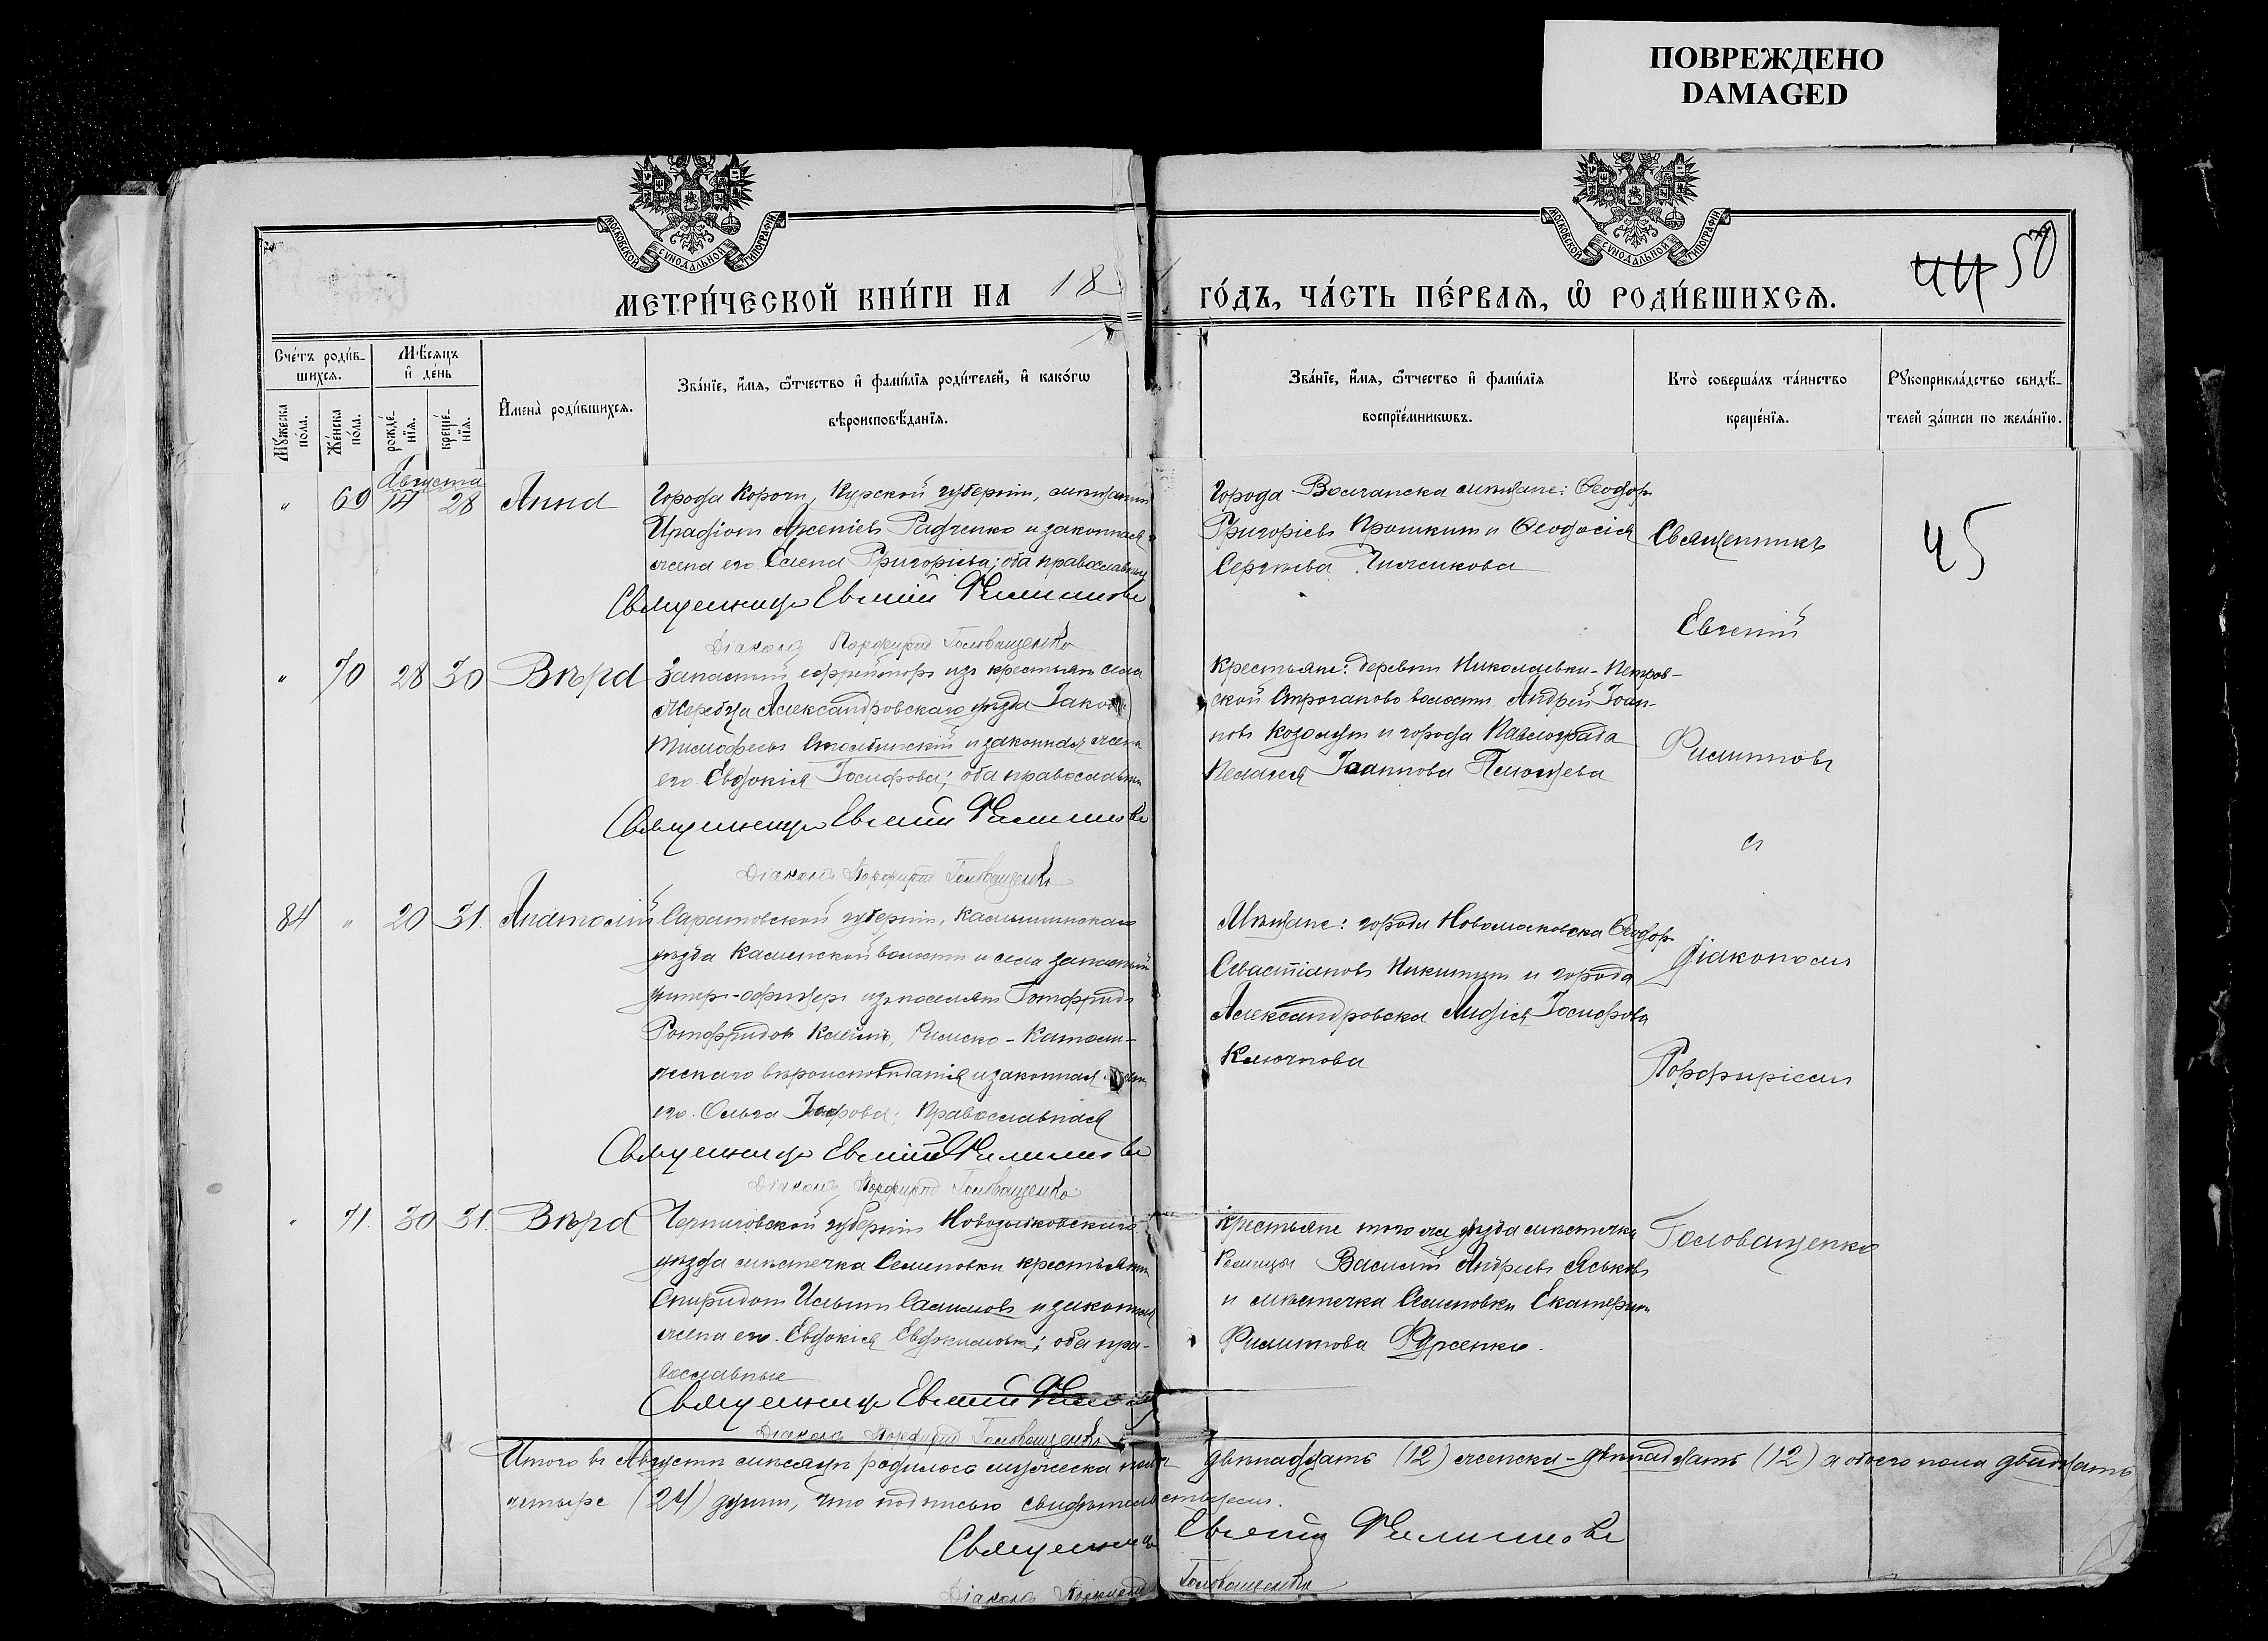 ПОВРЕЖДЕНО
DAMAGED
МОСКОВСКОЙ СѴНОДАЛЬНОЙ ТИПОГРАФІИ
МОСКОВСКОЙ СѴНОДАЛЬНОЙ ТИПОГРАФІИ
МЕТРИ́ЧЕСКОЙ КНИ́ГИ НА 18
ГО́ДЪ, ЧА́СТЬ ПЕ́РВАѦ, Ѡ҆ РОДИ́ВШИХСѦ.
44 50
Сче́тъ роди́в-
шихсѧ.
Мꙋ́жеска по́ла.
Же́нска по́ла.
Мѣ́сѧцъ
и҆ де́нь
рожде́-
нїѧ.
креще́-
нїѧ.
И҆мена̀ роди́вшихсѧ.
Зва́нїе, и҆́мѧ, ѻ҆́тчество и҆ фамилїѧ роди́телей, и҆ како́гѡ
вѣроисповѣ́данїѧ.
Зва́нїе, и҆́мѧ, ѻ҆́тчество и҆ фамилїѧ
воспрїе́мникѡвъ.
Кто̀ соверша́лъ та́инство
креще́нїѧ.
Рꙋкоприкла́дство свидѣ́-
телей за́писи по жела́нїю.
Августа
" 69 14 28 Анна
Города Корочи, Курской губерніи, мѣщанинъ
Иродіонъ Арсеніевъ Радченко и законная
жена его Елена Григоріева; оба православные
Священникъ Евгеній Филипповъ
Діаконъ Порфирій Головащенко
Города Волчанска мѣщане: Ѳеодоръ
Григорьевъ Прошкинъ и Ѳеодосія
Сергѣева Чижикова
Священникъ
Евгеній
Филипповъ
съ
Діакономъ
Порфиріемъ
Головащенко
45
" 70 28 30 Вѣра
Запасный ефрейторъ изъ крестьянъ села
Жеребца Александровскаго уѣзда Іаковъ
Тимофеевъ Столбинскій и законная жена
его Евдокія Іосифова; оба православные
Священникъ Евгеній Филипповъ
Діаконъ Порфирій Головащенко
Крестьяне: деревни Николаевки-Петров-
ской Строгановой волости Андрей Іоан-
новъ и города Павлограда
Пелагія Іоаннова
84 " 20 31 Анатолій
Саратовской губерніи, Камышинскаго
уѣзда Каменской волости и села запасный
унтеръ-офицеръ изъ поселянъ Готфридъ
Готфридовъ Клейнъ, Римско-Католи-
ческаго вѣроисповѣданія и законная жена
его Ольга православная
Священникъ Евгеній Филипповъ
Діаконъ Порфирій Головащенко
Мѣщане: города Новомосковска Ѳеодоръ
Севастіановъ Никитинъ и города
Александровска Лидія Іосифова
Ключкова
" 71 30 31 Вѣра
Черниговской губерніи Новозыбковскаго
уѣзда мѣстечка Семеновки крестьянинъ
Спиридонъ Ильинъ и законная
жена его Евдокія Евдокимова; оба пра-
вославные
Священникъ Евгеній Филипповъ
Діаконъ Порфирій Головащенко
Крестьяне того же уѣзда мѣстечка
Василій Андреевъ Аськовъ
и мѣстечка Семеновки Екатерина
Филиппова
Итого въ Августѣ мѣсяцѣ родилось мужеска пола двѣнадцать (12) женска - двѣнадцать (12) а обоего пола двадцать
четыре (24) души, что подписью свидѣтельствуемъ.
Священникъ Евгеній Филипповъ
Діаконъ Порфирій Головащенко